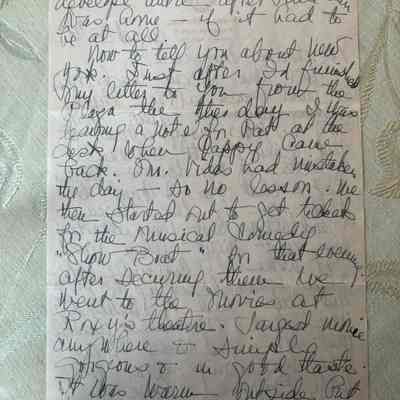 develope alone - after
was gone - if it had to
be at all.
Now to tell you about New
York. Just after I'd finished
my letter to you from the
Plaza the other day I was
leaving a note for Pat at the
desk when Pappy came
back. Mr. Vidas had mistaken
the day - so no lesson. We
then started out to get tickets
for the Musical Comedy
"Show Boat" for that evening
after securing them we
went to the Movies at
Roxy's theatre. Largest movie
anywhere & simply
gorgeous & in good taste.
It was warm outside but